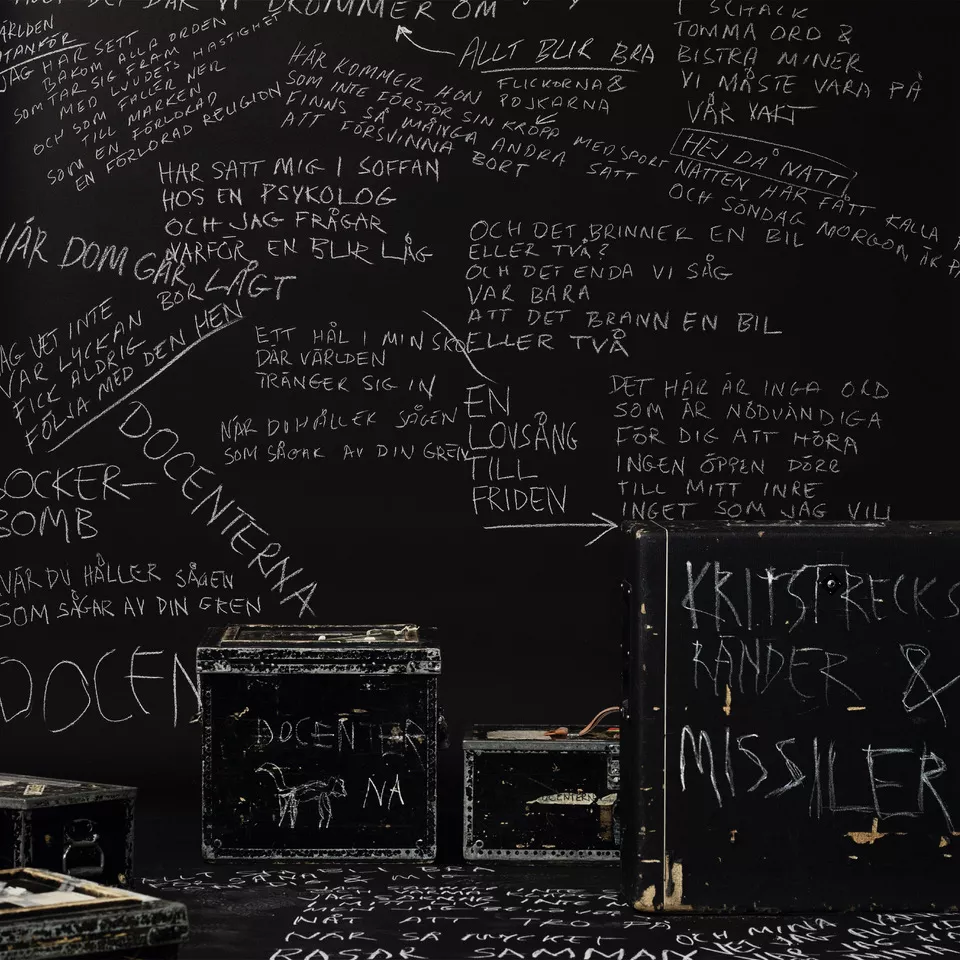 DET DÄR VI DRÖMMER OM
VÄRLDEN
UTANFÖR
JAG HAR SETT
BAKOM ALLA ORDEN
SOM TAR SIG FRAM
MED LJUDETS HASTIGHET
OCH SOM FALLER NER
TILL MARKEN
SOM EN FÖRLORAD
EN FÖRLORAD RELIGION
HÄR KOMMER HON
SOM INTE FÖRSTÖR SIN KROPP MED SPORT
FINNS SÅ MÅNGA ANDRA SÄTT
ATT FÖRSVINNA BORT
ALLT BLIR BRA
FLICKORNA &
POJKARNA
I SCHACK
TOMMA ORD &
BISTRA MINER
VI MÅSTE VARA PÅ
VÅR VAKT
HEJ DÅ NATT
NATTEN HAR FÅTT KALLA
OCH SÖNDAG MORGON ÄR
HAR SATT MIG I SOFFAN
HOS EN PSYKOLOG
OCH JAG FRÅGAR
VARFÖR EN BLIR LÅG
NÄR DOM GÅR LÅGT
BOR
JAG VET INTE
VAR LYCKAN
FICK ALDRIG
FÖLJA MED DEN HEN
OCH DET BRINNER EN BIL
ELLER TVÅ?
OCH DET ENDA VI SÅG
VAR BARA
ATT DET BRANN EN BIL
ELLER TVÅ
ETT HÅL I MIN SKO
DÄR VÄRLDEN
TRÄNGER SIG IN
NÄR DU HÅLLER SÅGEN
SOM SÅGAR AV DIN GREN
EN
LOVSÅNG
TILL
FRIDEN
DET HÄR ÄR INGA ORD
SOM ÄR NÖDVÄNDIGA
FÖR DIG ATT HÖRA
INGEN ÖPPEN DÖRR
TILL MITT INRE
INGET SOM JAG VILL
DOCENTERNA
SOCKER-
BOMB
NÄR DU HÅLLER SÅGEN
SOM SÅGAR AV DIN GREN
DOCEN
DOCENTER
NA
DOCENTERNA
KRITSTRECKS
RÄNDER &
MISSILER
ALLT
JAG INTE
NÅT ATT TRO PÅ
NÄR SÅ MYCKET
RASAR SAMMAN
OCH MINA
VET JAG